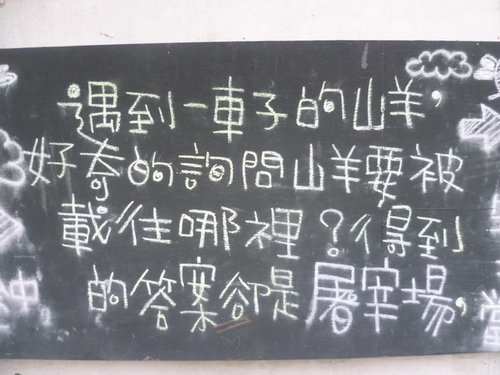 遇到一車子的山羊，
好奇的詢問山羊要被
載往哪裡？得到
的答案卻是屠宰場，